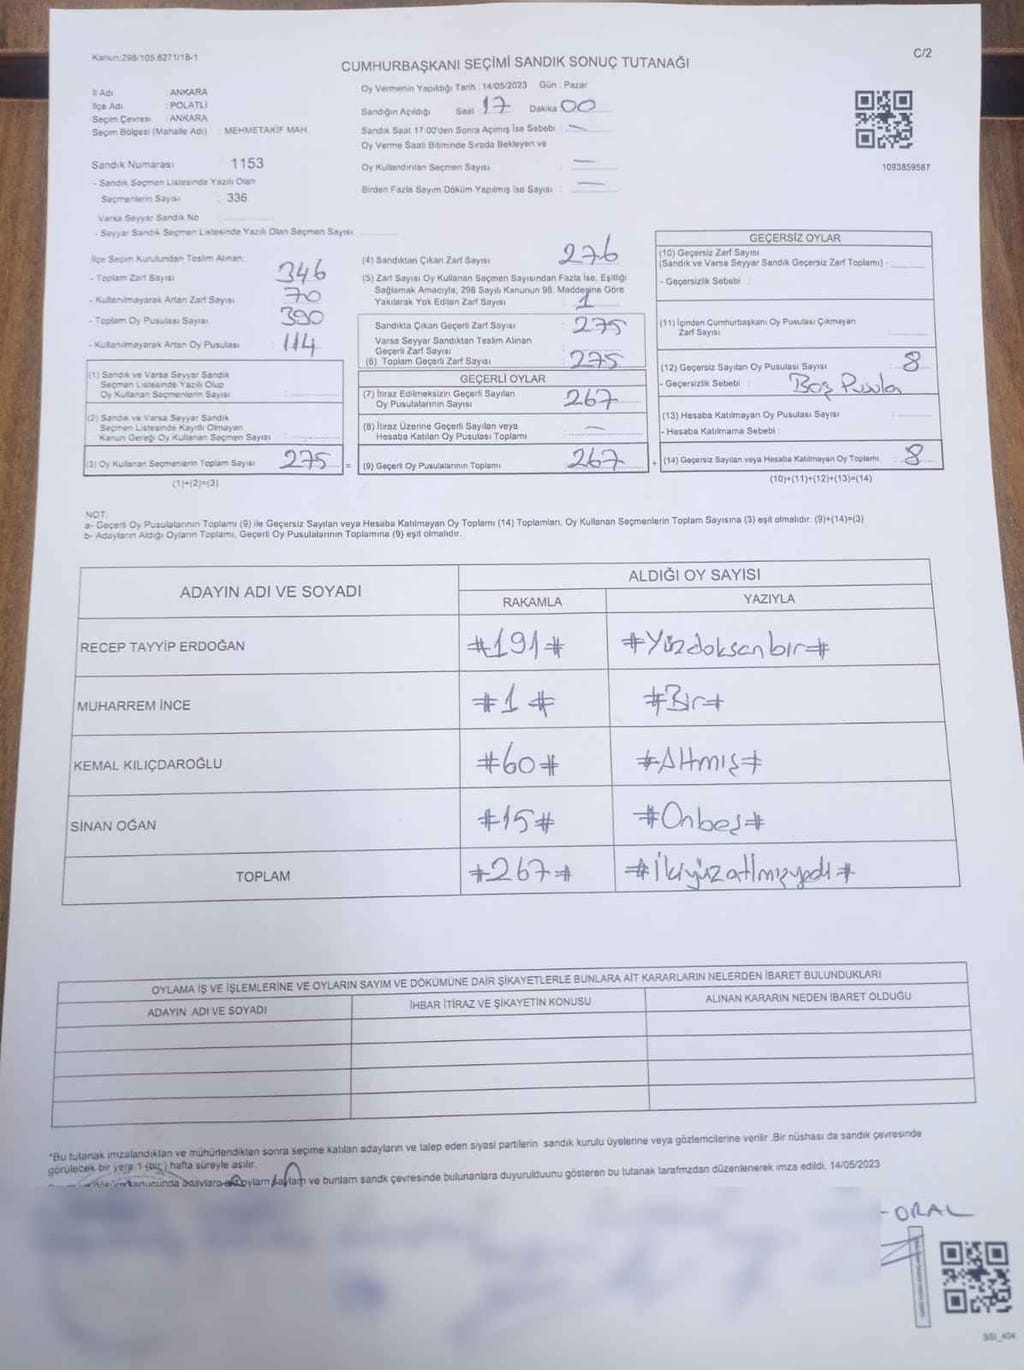 Kanun:298/105 6271/18-1
C/2
CUMHURBAŞKANI SEÇİMİ SANDIK SONUÇ TUTANAĞI
İl Adı : ANKARA
İlçe Adı : POLATLI
Seçim Çevresi : ANKARA
Seçim Bölgesi (Mahalle Adı) : MEHMETAKİF MAH.
Sandık Numarası 1153
- Sandık Seçmen Listesinde Yazılı Olan
Seçmenlerin Sayısı : 336
Varsa Seyyar Sandık No
- Seyyar Sandık Seçmen Listesinde Yazılı Olan Seçmen Sayısı
Oy Vermenin Yapıldığı Tarih : 14/05/2023 Gün : Pazar
Sandığın Açıldığı Saat 17 Dakika 00
Sandık Saat 17:00'den Sonra Açılmış İse Sebebi : —
Oy Verme Saati Bitiminde Sırada Bekleyen ve
Oy Kullandırılan Seçmen Sayısı : —
Birden Fazla Sayım Döküm Yapılmış İse Sayısı : —
1093859587
İlçe Seçim Kurulundan Teslim Alınan;
- Toplam Zarf Sayısı 346
- Kullanılmayarak Artan Zarf Sayısı 70
- Toplam Oy Pusulası Sayısı 390
- Kullanılmayarak Artan Oy Pusulası 114
(1) Sandık ve Varsa Seyyar Sandık
Seçmen Listesinde Yazılı Olup
Oy Kullanan Seçmenlerin Sayısı
(2) Sandık ve Varsa Seyyar Sandık
Seçmen Listesinde Kayıtlı Olmayan
Kanun Gereği Oy Kullanan Seçmen Sayısı
(3) Oy Kullanan Seçmenlerin Toplam Sayısı 275 =
(1)+(2)=(3)
(4) Sandıktan Çıkan Zarf Sayısı 276
(5) Zarf Sayısı Oy Kullanan Seçmen Sayısından Fazla İse, Eşitliği
Sağlamak Amacıyla; 298 Sayılı Kanunun 98. Maddesine Göre
Yakılarak Yok Edilen Zarf Sayısı : 1
Sandıkta Çıkan Geçerli Zarf Sayısı : 275
Varsa Seyyar Sandıktan Teslim Alınan
Geçerli Zarf Sayısı
(6) Toplam Geçerli Zarf Sayısı : 275
GEÇERLİ OYLAR
(7) İtiraz Edilmeksizin Geçerli Sayılan
Oy Pusulalarının Sayısı : 267
(8) İtiraz Üzerine Geçerli Sayılan veya
Hesaba Katılan Oy Pusulası Toplamı : —
(9) Geçerli Oy Pusulalarının Toplamı : 267 +
GEÇERSİZ OYLAR
(10) Geçersiz Zarf Sayısı
(Sandık ve Varsa Seyyar Sandık Geçersiz Zarf Toplamı) :
- Geçersizlik Sebebi :
(11) İçinden Cumhurbaşkanı Oy Pusulası Çıkmayan
Zarf Sayısı
(12) Geçersiz Sayılan Oy Pusulası Sayısı : 8
- Geçersizlik Sebebi : Boş Pusula
(13) Hesaba Katılmayan Oy Pusulası Sayısı :
- Hesaba Katılmama Sebebi :
(14) Geçersiz Sayılan veya Hesaba Katılmayan Oy Toplamı : 8
(10)+(11)+(12)+(13)=(14)
NOT:
a- Geçerli Oy Pusulalarının Toplamı (9) ile Geçersiz Sayılan veya Hesaba Katılmayan Oy Toplamı (14) Toplamları, Oy Kullanan Seçmenlerin Toplam Sayısına (3) eşit olmalıdır. (9)+(14)=(3)
b- Adayların Aldığı Oyların Toplamı, Geçerli Oy Pusulalarının Toplamına (9) eşit olmalıdır.
ADAYIN ADI VE SOYADI
ALDIĞI OY SAYISI
RAKAMLA YAZIYLA
RECEP TAYYİP ERDOĞAN #191# #Yüzdoksanbir#
MUHARREM İNCE #1# #Bir#
KEMAL KILIÇDAROĞLU #60# #Altmış#
SİNAN OĞAN #15# #Onbeş#
TOPLAM #267# #İkiyüzatlmışyedi#
OYLAMA İŞ VE İŞLEMLERİNE VE OYLARIN SAYIM VE DÖKÜMÜNE DAİR ŞİKAYETLERLE BUNLARA AİT KARARLARIN NELERDEN İBARET BULUNDUKLARI
ADAYIN ADI VE SOYADI İHBAR İTİRAZ VE ŞİKAYETİN KONUSU ALINAN KARARIN NEDEN İBARET OLDUĞU
*Bu tutanak imzalandıktan ve mühürlendikten sonra seçime katılan adayların ve talep eden siyasi partilerin sandık kurulu üyelerine veya gözlemcilerine verilir .Bir nüshası da sandık çevresinde
görülecek bir yere 1 (bir) hafta süreyle asılır.
adaylara ve bunların sandk çevresinde bulunanlara duyurulduunu gösteren bu tutanak tarafmzdan düzenlenerek imza edildi. 14/05/2023
ORAL
SSI_404